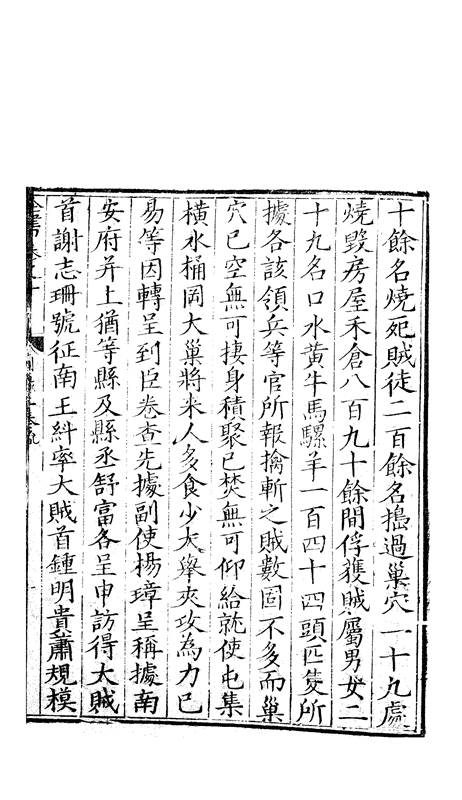 十餘名燒死賊徒二百餘名搗過巢穴一十九處
燒毀房屋禾倉八百九十餘間俘獲賊屬男女二
十九名口水黃牛馬騾羊一百四十四頭匹隻所
據各該領兵等官所報擒斬之賊數固不多而巢
穴已空無可捿身積聚已焚無可仰給就使屯集
橫水桶岡大巢將來人多食少大舉夾攻為力已
易等因轉呈到臣卷查先據副使楊璋呈稱據南
安府并上猶等縣及縣丞舒富各呈申訪得大賊
首謝志珊號征南王糾率大賊首鍾明貴蕭規模